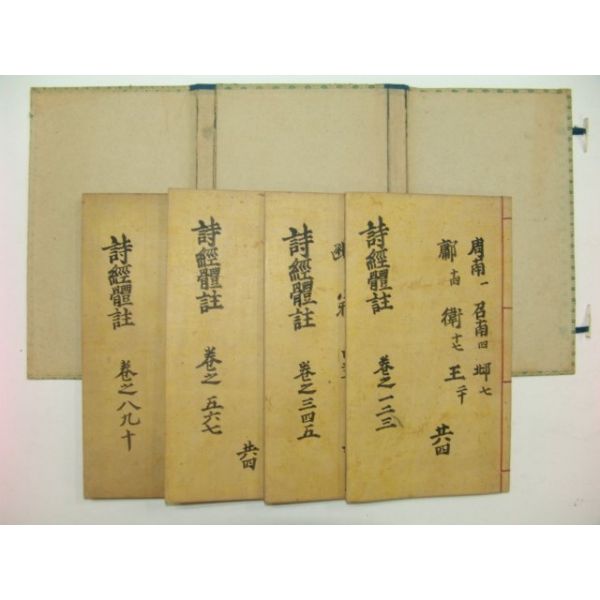 周南一 召南四 邶七
鄘十四 衛十七 王二十
共四
詩經體註 卷之一二三
詩經體註 卷之三四五
共四
詩經體註 卷之五六七
詩經體註 卷之八九十